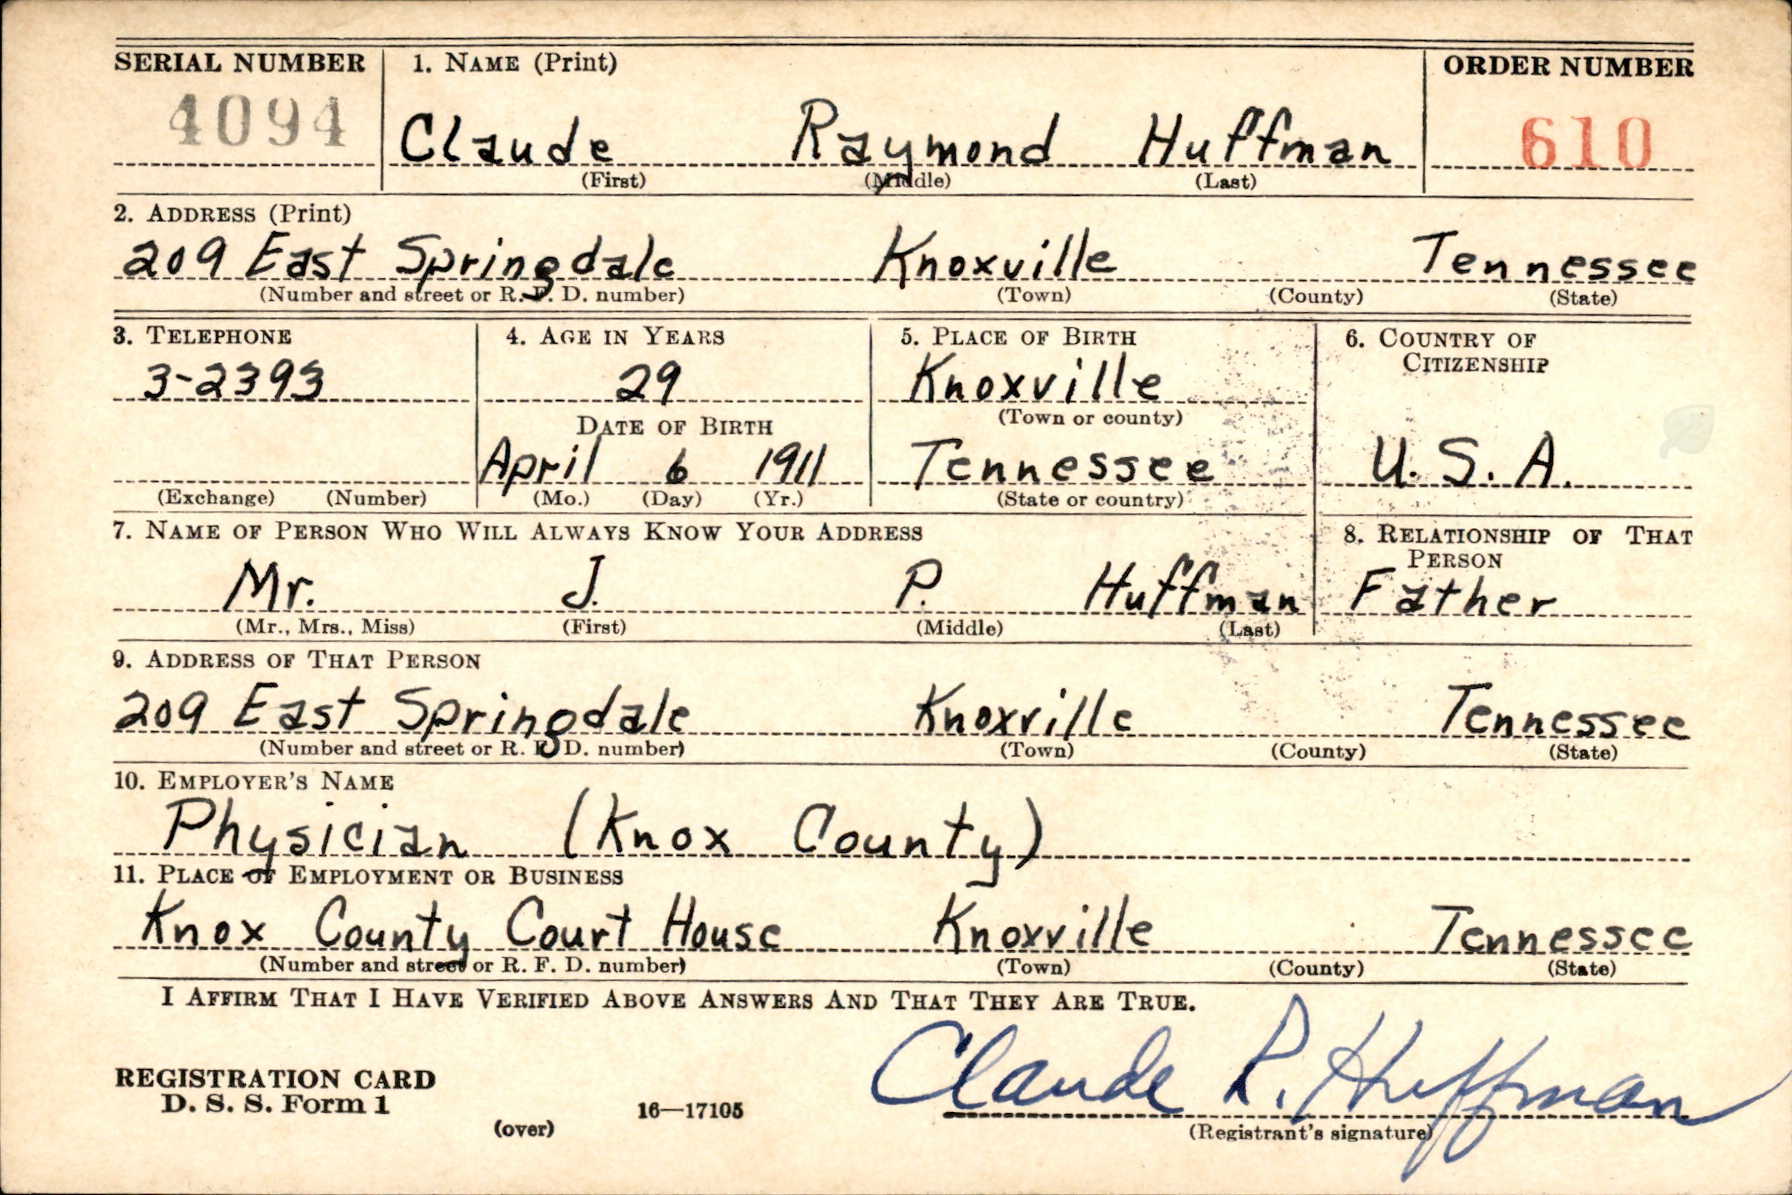 SERIAL NUMBER 1. NAME (Print) ORDER NUMBER
4094 Claude Raymond Huffman 610
(First) (Middle) (Last)
2. ADDRESS (Print)
209 East Springdale Knoxville Tennessee
(Number and street or R. F. D. number) (Town) (County) (State)
3. TELEPHONE 4. AGE IN YEARS 5. PLACE OF BIRTH 6. COUNTRY OF
CITIZENSHIP
3-2393 29 Knoxville
(Town or county)
DATE OF BIRTH
April 6 1911 Tennessee U. S. A.
(Exchange) (Number) (Mo.) (Day) (Yr.) (State or country)
7. NAME OF PERSON WHO WILL ALWAYS KNOW YOUR ADDRESS 8. RELATIONSHIP OF THAT
PERSON
Mr. J. P. Huffman Father
(Mr., Mrs., Miss) (First) (Middle) (Last)
9. ADDRESS OF THAT PERSON
209 East Springdale Knoxville Tennessee
(Number and street or R. F. D. number) (Town) (County) (State)
10. EMPLOYER'S NAME
Physician (Knox County)
11. PLACE OF EMPLOYMENT OR BUSINESS
Knox County Court House Knoxville Tennessee
(Number and street or R. F. D. number) (Town) (County) (State)
I AFFIRM THAT I HAVE VERIFIED ABOVE ANSWERS AND THAT THEY ARE TRUE.
Claude R. Huffman
REGISTRATION CARD
D. S. S. Form 1 16—17105
(over) (Registrant's signature)